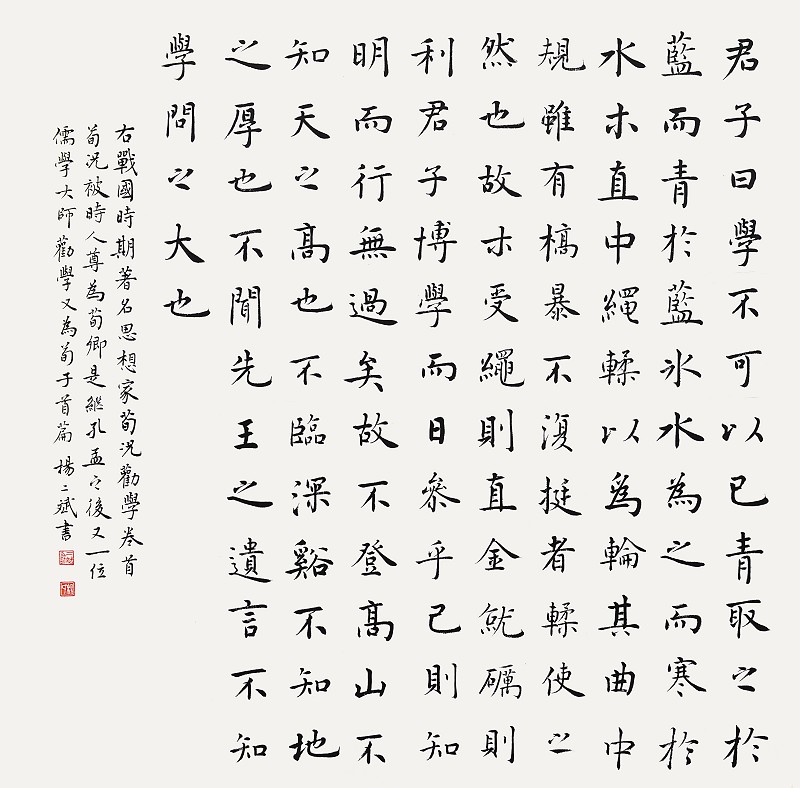 君子曰學不可以已青取之於
藍而青於藍冰水為之而寒於
水木直中繩輮以為輪其曲中
規雖有槁暴不復挺者輮使之
然也故木受繩則直金就礪則
利君子博學而日參乎己則知
明而行無過矣故不登高山不
知天之高也不臨深谿不知地
之厚也不聞先王之遺言不知
學問之大也
右戰國時期著名思想家荀況勸學卷首
荀況被時人尊為荀卿是繼孔孟之後又一位
儒學大師勸學又為荀子首篇 楊二斌書